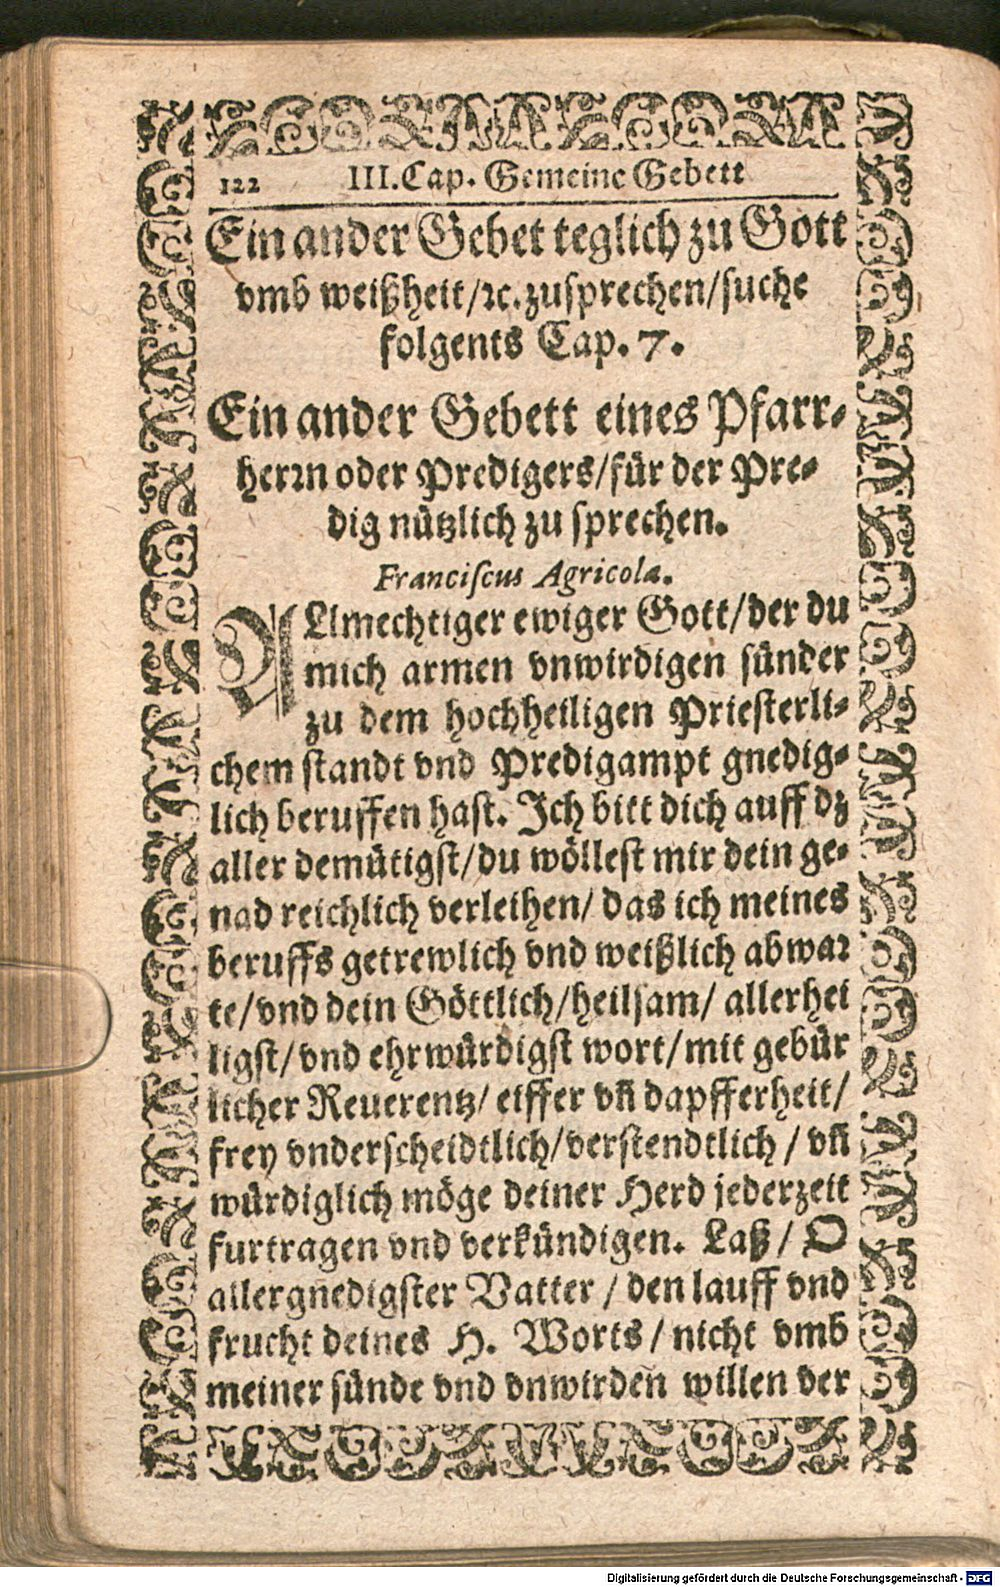 122 III.Cap. Gemeine Gebett
Ein ander Gebet teglich zu Gott
vmb weißheit/ꝛc. zusprechen/suche
folgents Cap. 7.
Ein ander Gebett eines Pfarr⸗
herrn oder Predigers/für der Pre⸗
dig nützlich zu sprechen.
Franciſcus Agricola.
ALlmechtiger ewiger Gott/der du
mich armen vnwirdigen sünder
zu dem hochheiligen Priesterli⸗
chem standt vnd Predigampt gnedig⸗
lich beruffen hast. Ich bitt dich auff dz
aller demütigst/du wöllest mir dein ge⸗
nad reichlich verleihen/ das ich meines
beruffs getrewlich vnd weißlich abwar
te/vnd dein Göttlich/heilsam/ allerhei
ligst/vnd ehrwürdigst wort/mit gebür
licher Reuerentz/ eiffer vn̄ dapfferheit/
frey vnderscheidtlich/verstendtlich / vn̄
würdiglich möge deiner Herd jederzeit
furtragen vnd verkündigen. Laß / O
allergnedigster Vatter / den lauff vnd
frucht deines H. Worts / nicht vmb
meiner sünde vnd vnwirden willen der
Digitalisierung gefördert durch die Deutsche Forschungsgemeinschaft - DFG